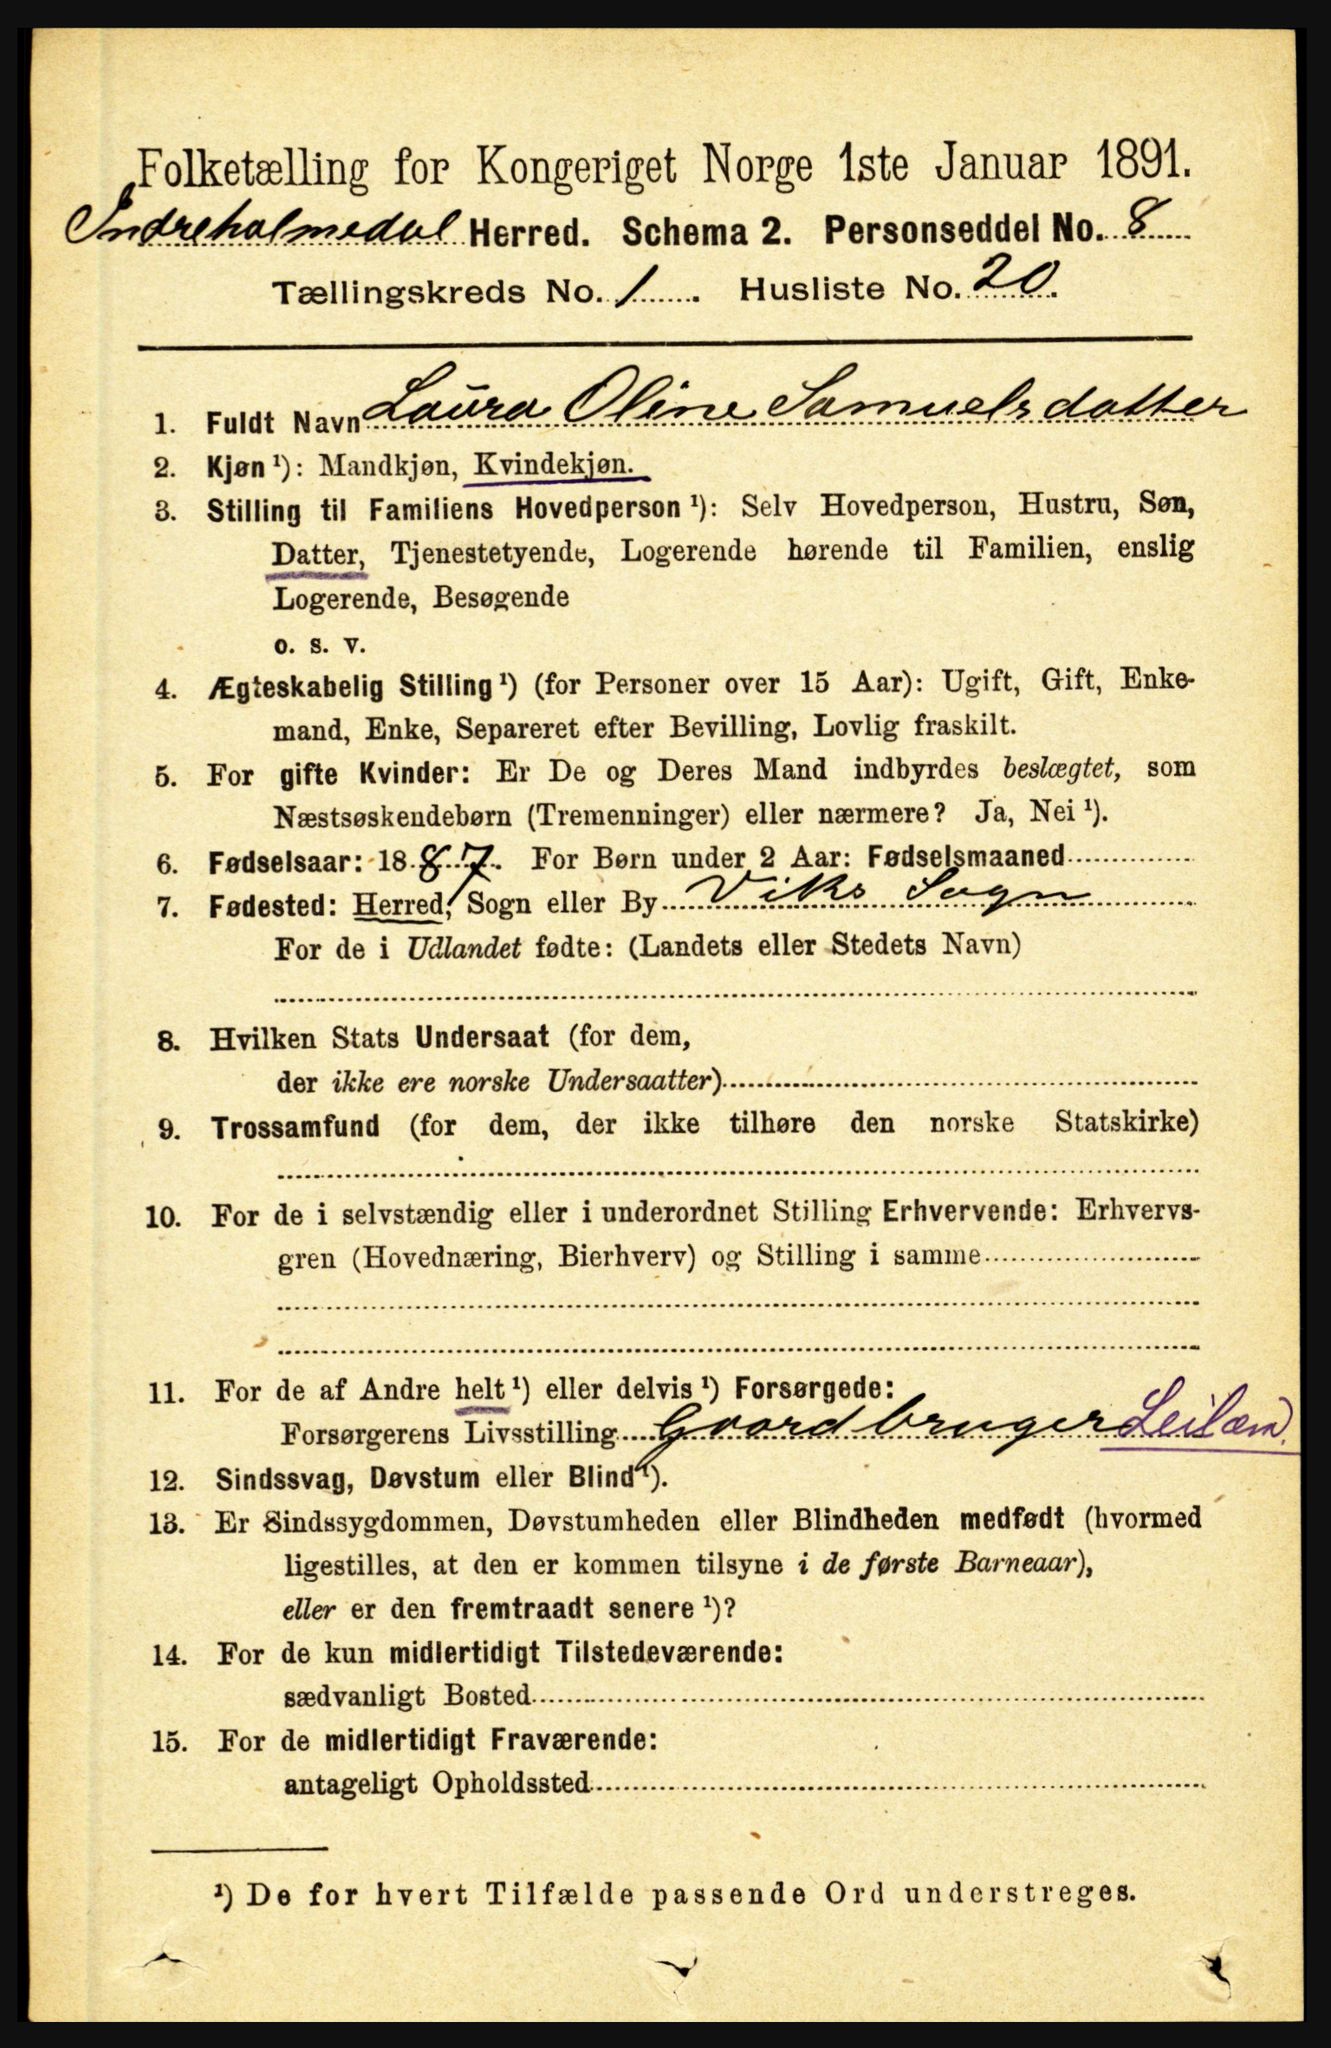 Folketælling for Kongeriget Norge 1ste Januar 1891.
Indreholmedal Herred. Schema 2. Personseddel No. 8
Tællingskreds No. 1. Husliste No. 20.
1. Fuldt Navn Laura Oline Samuelsdatter
2. Kjøn ¹): Mandkjøn, Kvindekjøn.
3. Stilling til Familiens Hovedperson ¹): Selv Hovedperson, Hustru, Søn,
Datter, Tjenestetyende, Logerende hørende til Familien, enslig
Logerende, Besøgende
o. s. v.
4. Ægteskabelig Stilling ¹) (for Personer over 15 Aar): Ugift, Gift, Enke-
mand, Enke, Separeret efter Bevilling, Lovlig fraskilt.
5. For gifte Kvinder: Er De og Deres Mand indbyrdes beslægtet, som
Næstsøskendebørn (Tremenninger) eller nærmere? Ja, Nei ¹).
6. Fødselsaar: 1887. For Børn under 2 Aar: Fødselsmaaned
7. Fødested: Herred, Sogn eller By Viks Sogn
For de i Udlandet fødte: (Landets eller Stedets Navn)
8. Hvilken Stats Undersaat (for dem,
der ikke ere norske Undersaatter)
9. Trossamfund (for dem, der ikke tilhøre den norske Statskirke)
10. For de i selvstændig eller i underordnet Stilling Erhvervende: Erhvervs-
gren (Hovednæring, Bierhverv) og Stilling i samme
11. For de af Andre helt ¹) eller delvis ¹) Forsørgede:
Forsørgerens Livsstilling Goardbruger Leilæn.
12. Sindssvag, Døvstum eller Blind ¹).
13. Er Sindssygdommen, Døvstumheden eller Blindheden medfødt (hvormed
ligestilles, at den er kommen tilsyne i de første Barneaar),
eller er den fremtraadt senere ¹)?
14. For de kun midlertidigt Tilstedeværende:
sædvanligt Bosted
15. For de midlertidigt Fraværende:
antageligt Opholdssted
¹) De for hvert Tilfælde passende Ord understreges.